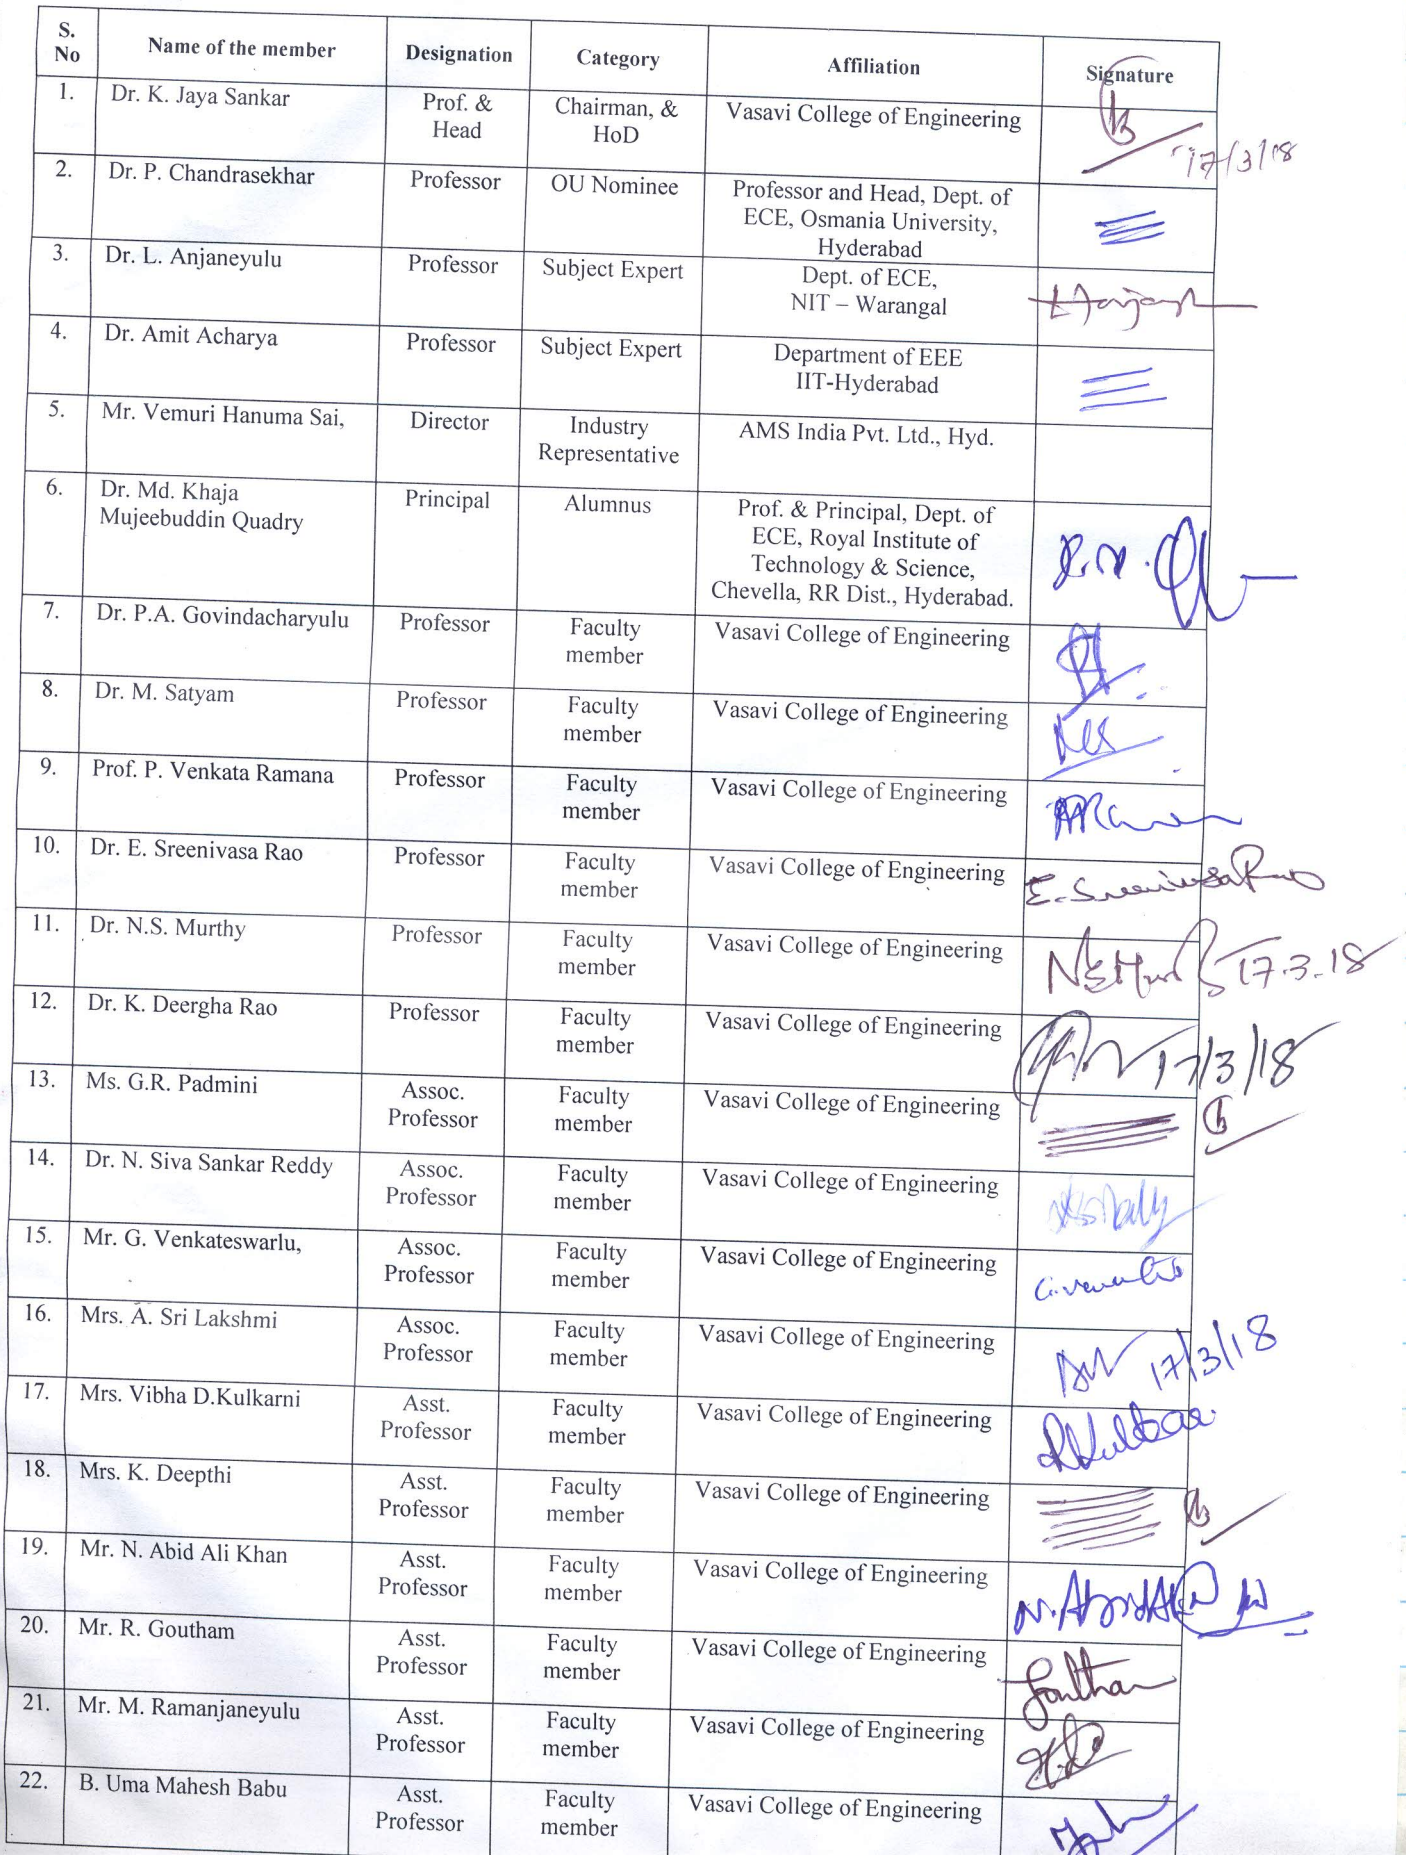 S. No | Name of the member | Designation | Category | Affiliation | Signature
1. | Dr. K. Jaya Sankar | Prof. & Head | Chairman, & HoD | Vasavi College of Engineering | 17/3/18
2. | Dr. P. Chandrasekhar | Professor | OU Nominee | Professor and Head, Dept. of ECE, Osmania University, Hyderabad
3. | Dr. L. Anjaneyulu | Professor | Subject Expert | Dept. of ECE, NIT – Warangal
4. | Dr. Amit Acharya | Professor | Subject Expert | Department of EEE IIT-Hyderabad
5. | Mr. Vemuri Hanuma Sai, | Director | Industry Representative | AMS India Pvt. Ltd., Hyd.
6. | Dr. Md. Khaja Mujeebuddin Quadry | Principal | Alumnus | Prof. & Principal, Dept. of ECE, Royal Institute of Technology & Science, Chevella, RR Dist., Hyderabad.
7. | Dr. P.A. Govindacharyulu | Professor | Faculty member | Vasavi College of Engineering
8. | Dr. M. Satyam | Professor | Faculty member | Vasavi College of Engineering
9. | Prof. P. Venkata Ramana | Professor | Faculty member | Vasavi College of Engineering
10. | Dr. E. Sreenivasa Rao | Professor | Faculty member | Vasavi College of Engineering | E. Sreenivasa Rao
11. | Dr. N.S. Murthy | Professor | Faculty member | Vasavi College of Engineering | 17.3.18
12. | Dr. K. Deergha Rao | Professor | Faculty member | Vasavi College of Engineering | 17/3/18
13. | Ms. G.R. Padmini | Assoc. Professor | Faculty member | Vasavi College of Engineering
14. | Dr. N. Siva Sankar Reddy | Assoc. Professor | Faculty member | Vasavi College of Engineering
15. | Mr. G. Venkateswarlu, | Assoc. Professor | Faculty member | Vasavi College of Engineering
16. | Mrs. A. Sri Lakshmi | Assoc. Professor | Faculty member | Vasavi College of Engineering | 17/3/18
17. | Mrs. Vibha D.Kulkarni | Asst. Professor | Faculty member | Vasavi College of Engineering
18. | Mrs. K. Deepthi | Asst. Professor | Faculty member | Vasavi College of Engineering
19. | Mr. N. Abid Ali Khan | Asst. Professor | Faculty member | Vasavi College of Engineering
20. | Mr. R. Goutham | Asst. Professor | Faculty member | Vasavi College of Engineering
21. | Mr. M. Ramanjaneyulu | Asst. Professor | Faculty member | Vasavi College of Engineering
22. | B. Uma Mahesh Babu | Asst. Professor | Faculty member | Vasavi College of Engineering